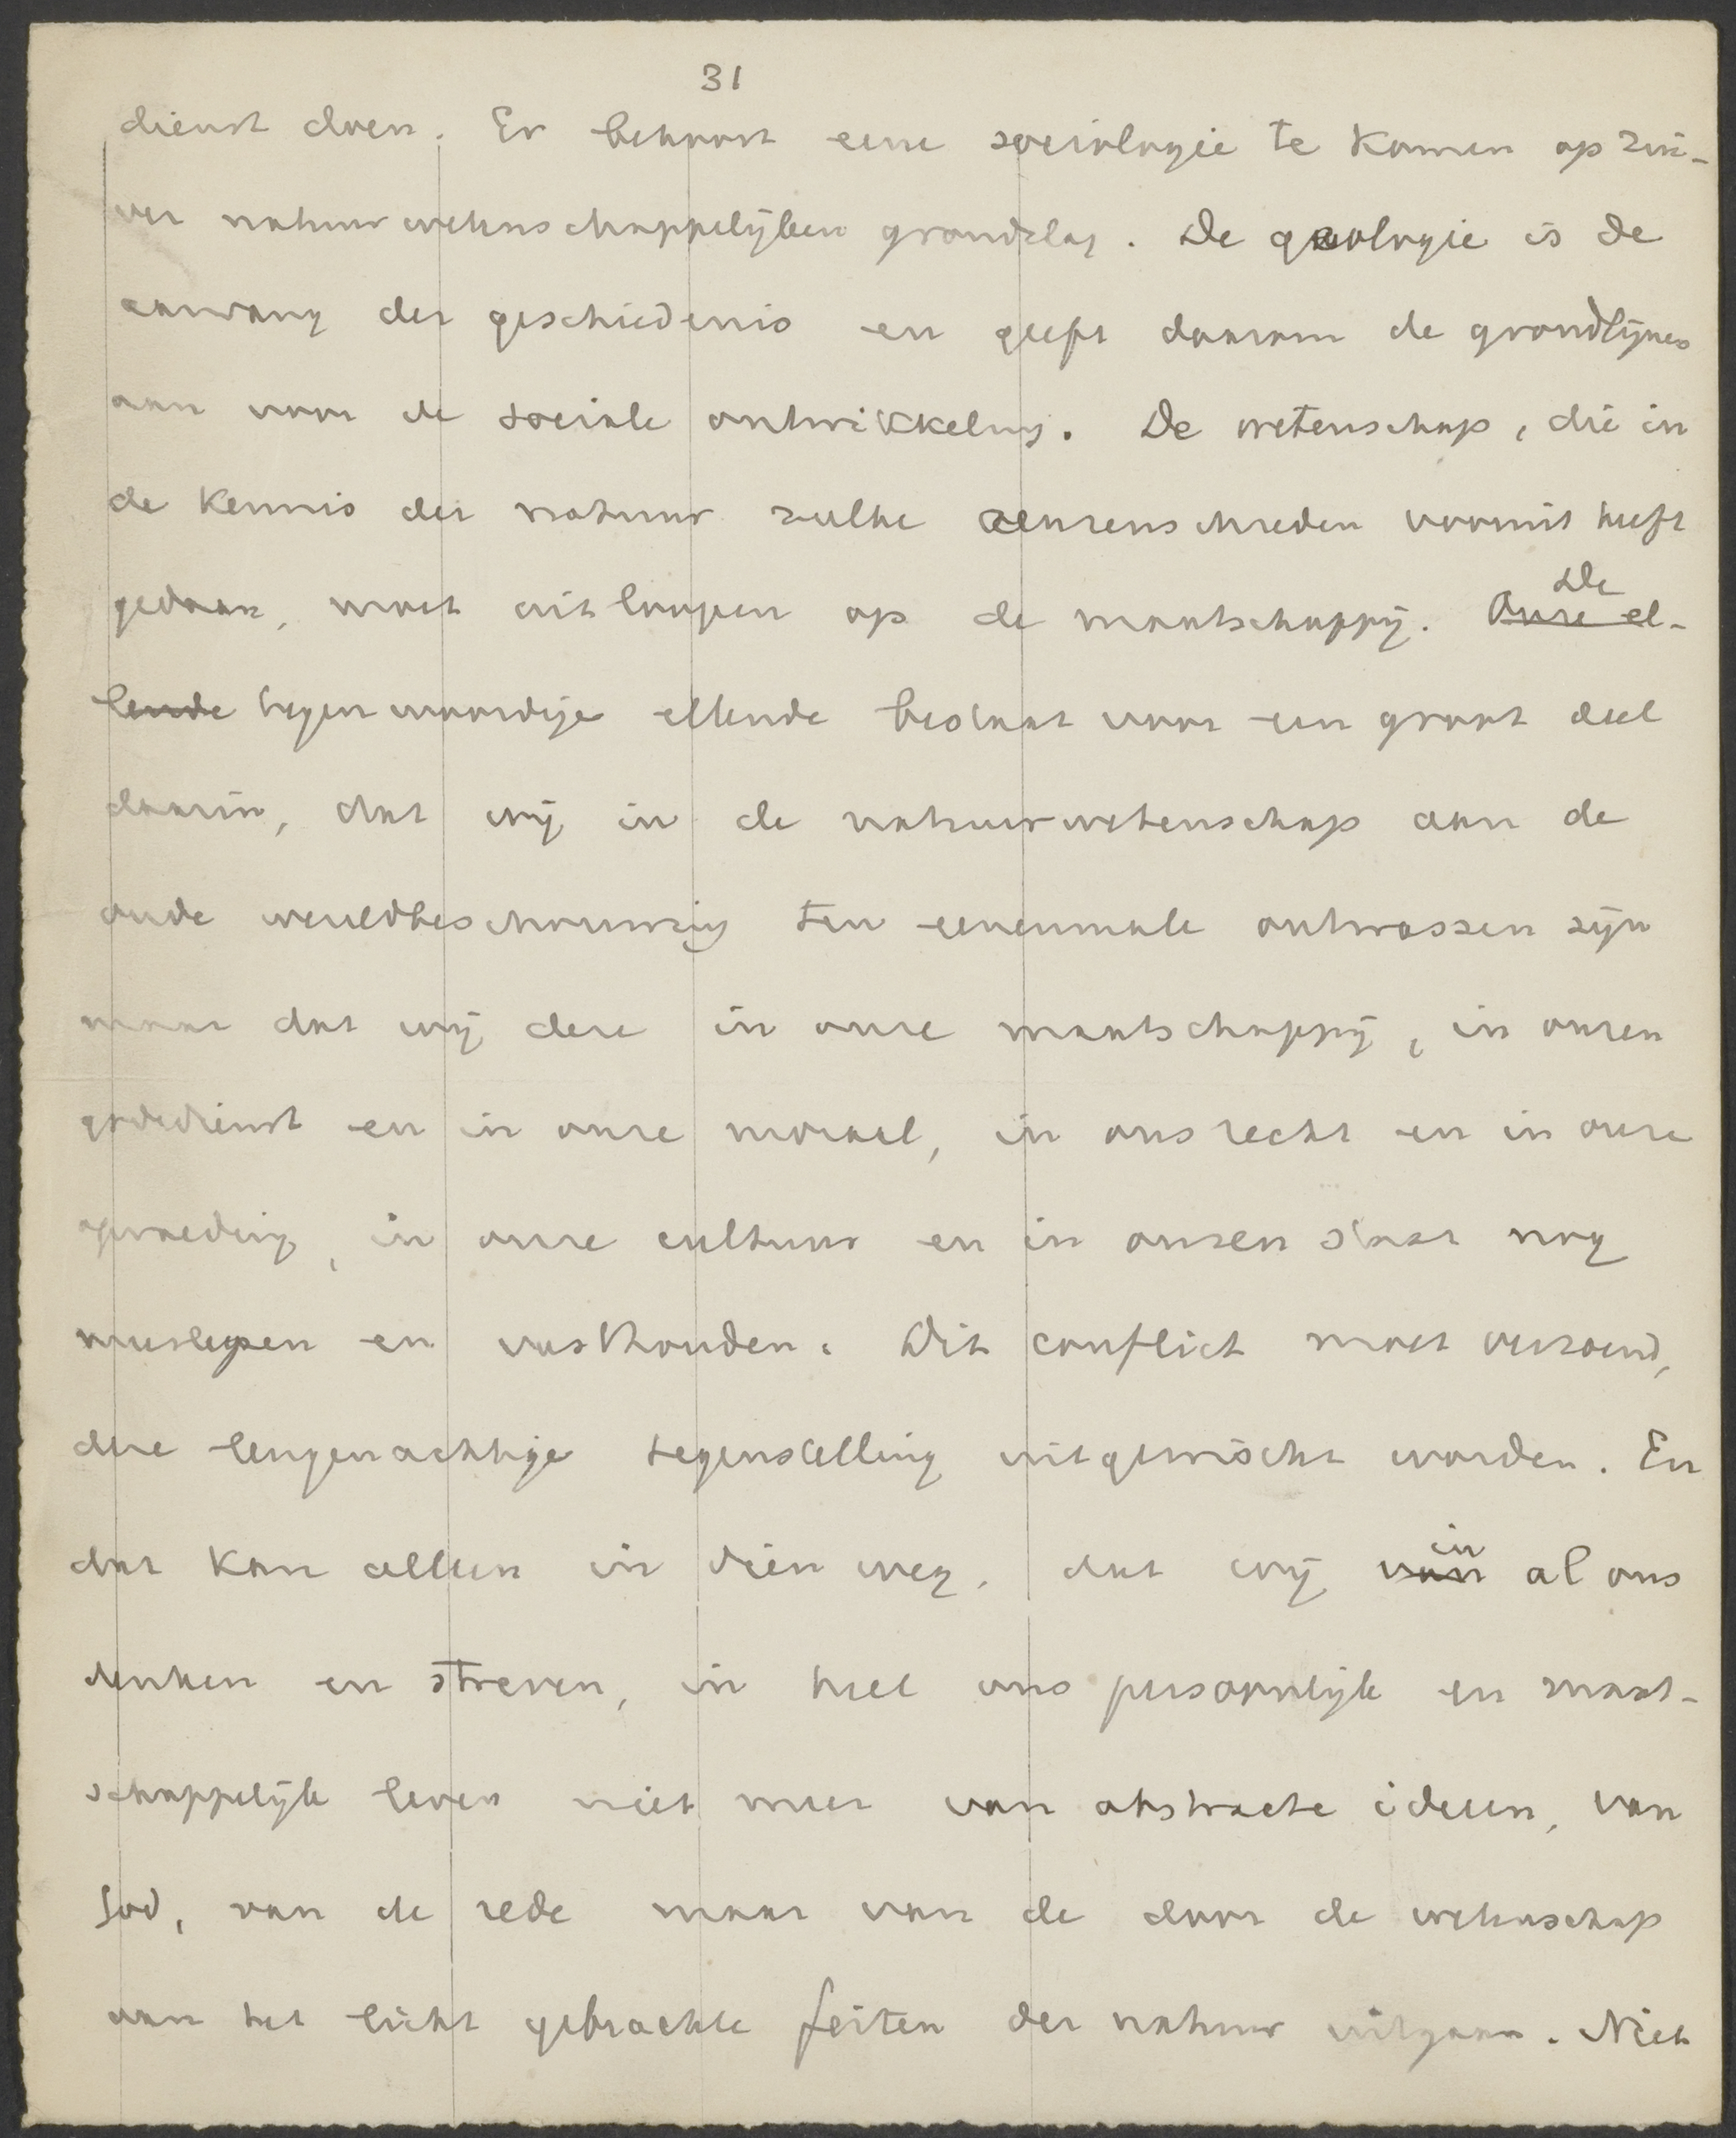 31
dienst doen. Er behoort eene sociologie te komen op zui-
ver natuurwetenschappelijken grondslag. De geologie is de
aanvang der geschiedenis en geeft daarom de grondlijnen
aan voor de sociale ontwikkeling. De wetenschap, die in
de kennis der natuur zulke reuzenschreden vooruit heeft
gedaan, moet uitloopen op de maatschappij. Onze el- De
lende tegenwoordige ellende bestaat voor een groot deel
daarin, dat wij in de natuurwetenschap aan de
oude wereldbeschouwing ten eenenmale ontwassen zijn
maar dat wij deze in onze maatschappij, in onzen
godsdienst en in onze moraal, in ons recht en in onze
opvoeding, in onze cultuur en in onzen staat nog
meeslepen en vasthouden. Dit conflict moet verzoend,
deze leugenachtige tegenstelling uitgewischt worden. En
dat kan alleen in dien weg, dat wij van in al ons
denken en streven, in heel ons persoonlijk en maat-
schappelijk leven niet meer van abstracte ideeen, van
God, van de rede maar van de door de wetenschap
aan het licht gebrachte feiten der natuur uitgaan. Niet